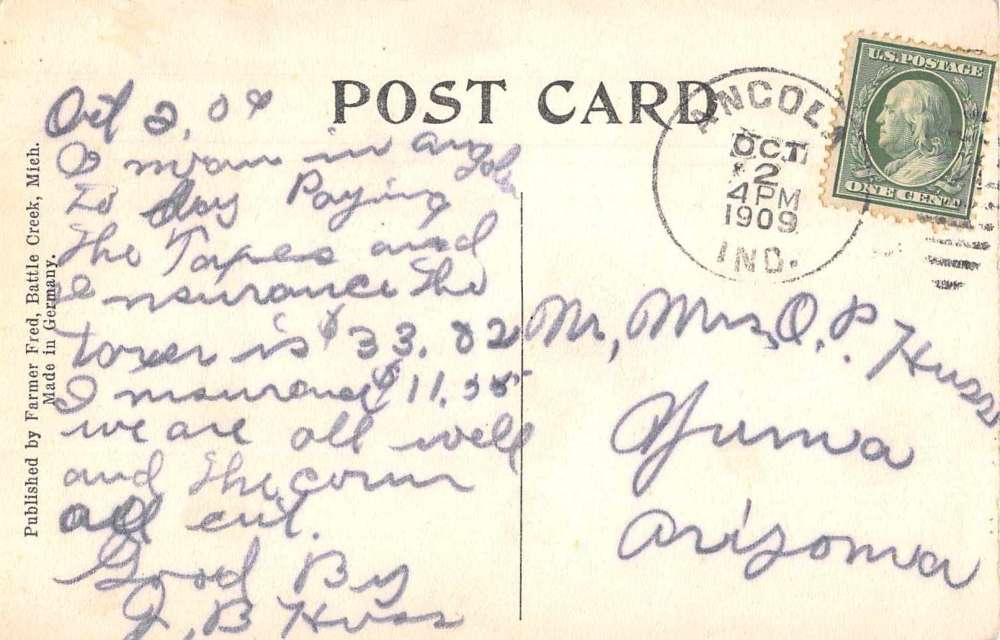 POST CARD
Oct 2, 09
I in Angola
To day Paying
The Taxes and
Insurance The
taxes is $33.82
Insurance $11.55
we are all well
and the corn
all cut.
Good By
J. B Huss
Mr, Mrs, O. P. Huss
Yuma
Arizona
LINCOLN
OCT
2
4PM
1909
IND.
U.S. POSTAGE
ONE CENT
Published by Farmer Fred, Battle Creek, Mich.
Made in Germany.